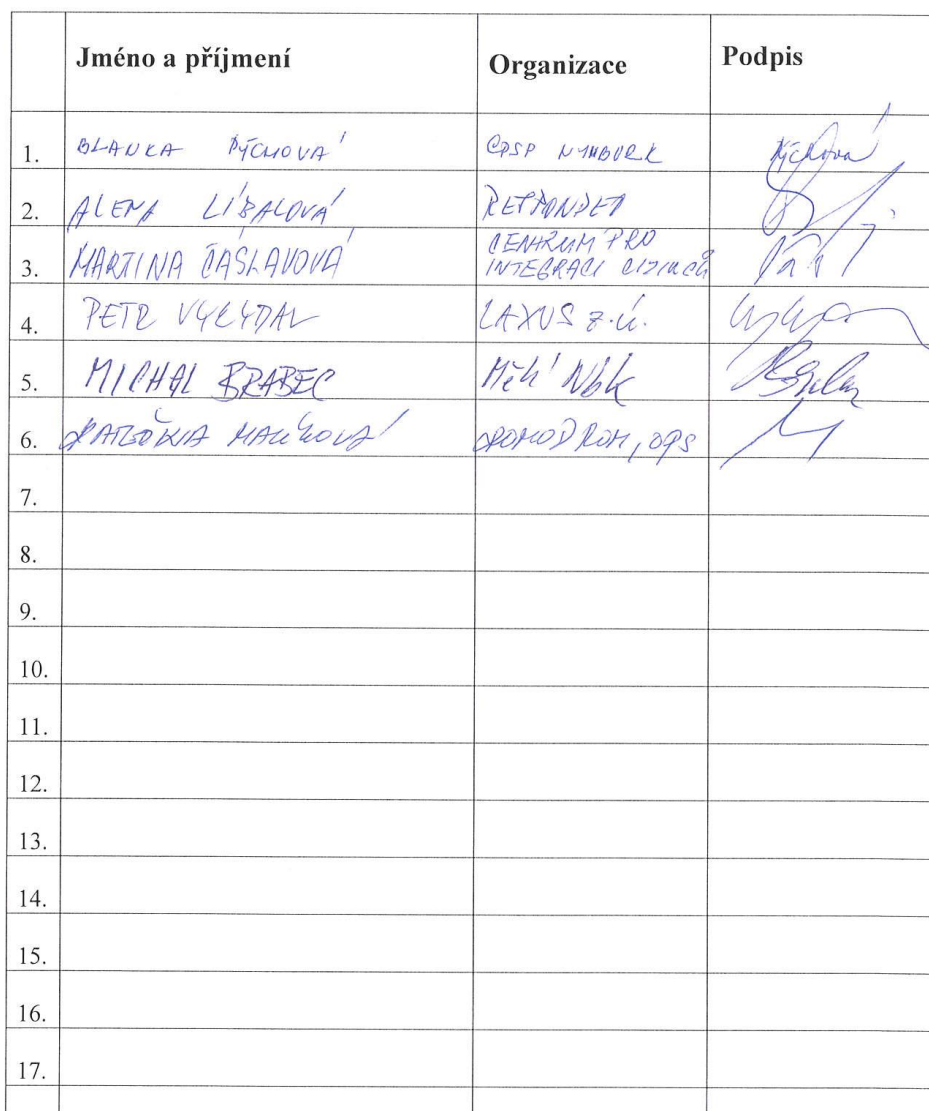 Jméno a příjmení Organizace Podpis
1. BLANKA PÝCHOVÁ CPSP NYMBURK Pýchová
2. ALENA LÍBALOVÁ RESPONDEO
3. MARTINA ČÁSLAVOVÁ CENTRUM PRO
INTEGRACI CIZINCŮ
4. PETR VYKYDAL LAXUS z.ú.
5. MICHAL BRABEC MěÚ Nbk
6. MALÍKOVÁ ROMODROM, OPS
7.
8.
9.
10.
11.
12.
13.
14.
15.
16.
17.